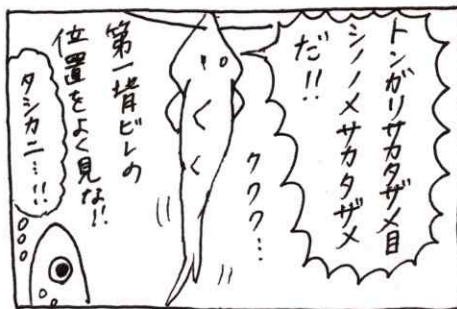 トンガリサカタザメ目
シノノメサカタザメ
だ!!
クククク…
第一背ビレの
位置をよく見な!!
タシカニ…!!